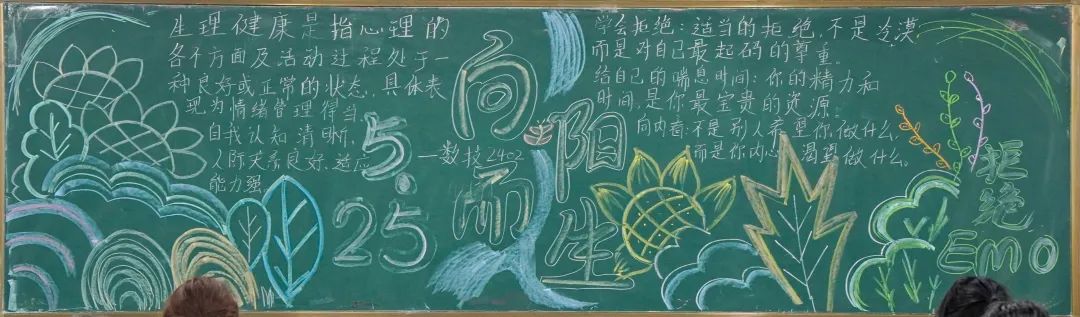 生理健康是指心理的
各个方面及活动过程处于一
种良好或正常的状态，具体表
现为情绪管理得当，
自我认知清晰，
人际关系良好、适应
能力强
5.25
一数技2402
向阳
而生
学会拒绝：适当的拒绝，不是冷漠，
而是对自己最起码的尊重。
给自己的喘息时间：你的精力和
时间，是你最宝贵的资源。
不是别人希望你做什么，
而是你内心渴望做什么。
拒绝
EMO